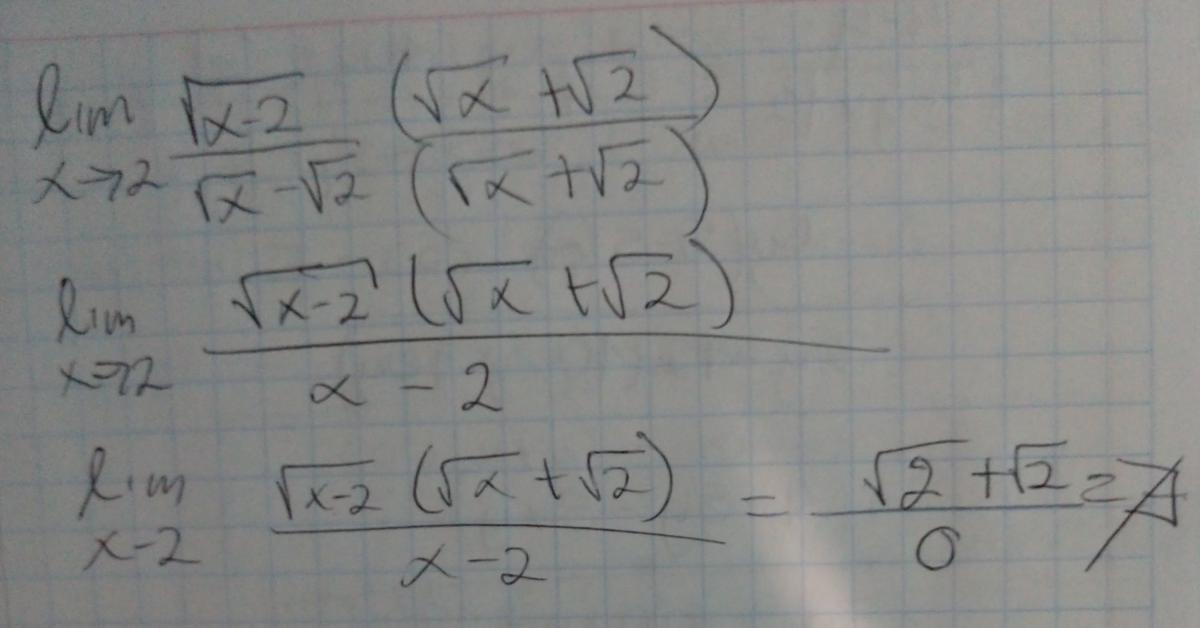 lim x→2 √(x-2) / (√x - √2) (√x + √2) / (√x + √2)
lim x→2 √(x-2) (√x + √2) / (x - 2)
lim x-2 √(x-2) (√x + √2) / (x-2) = (√2 + √2) / 0 = ∄